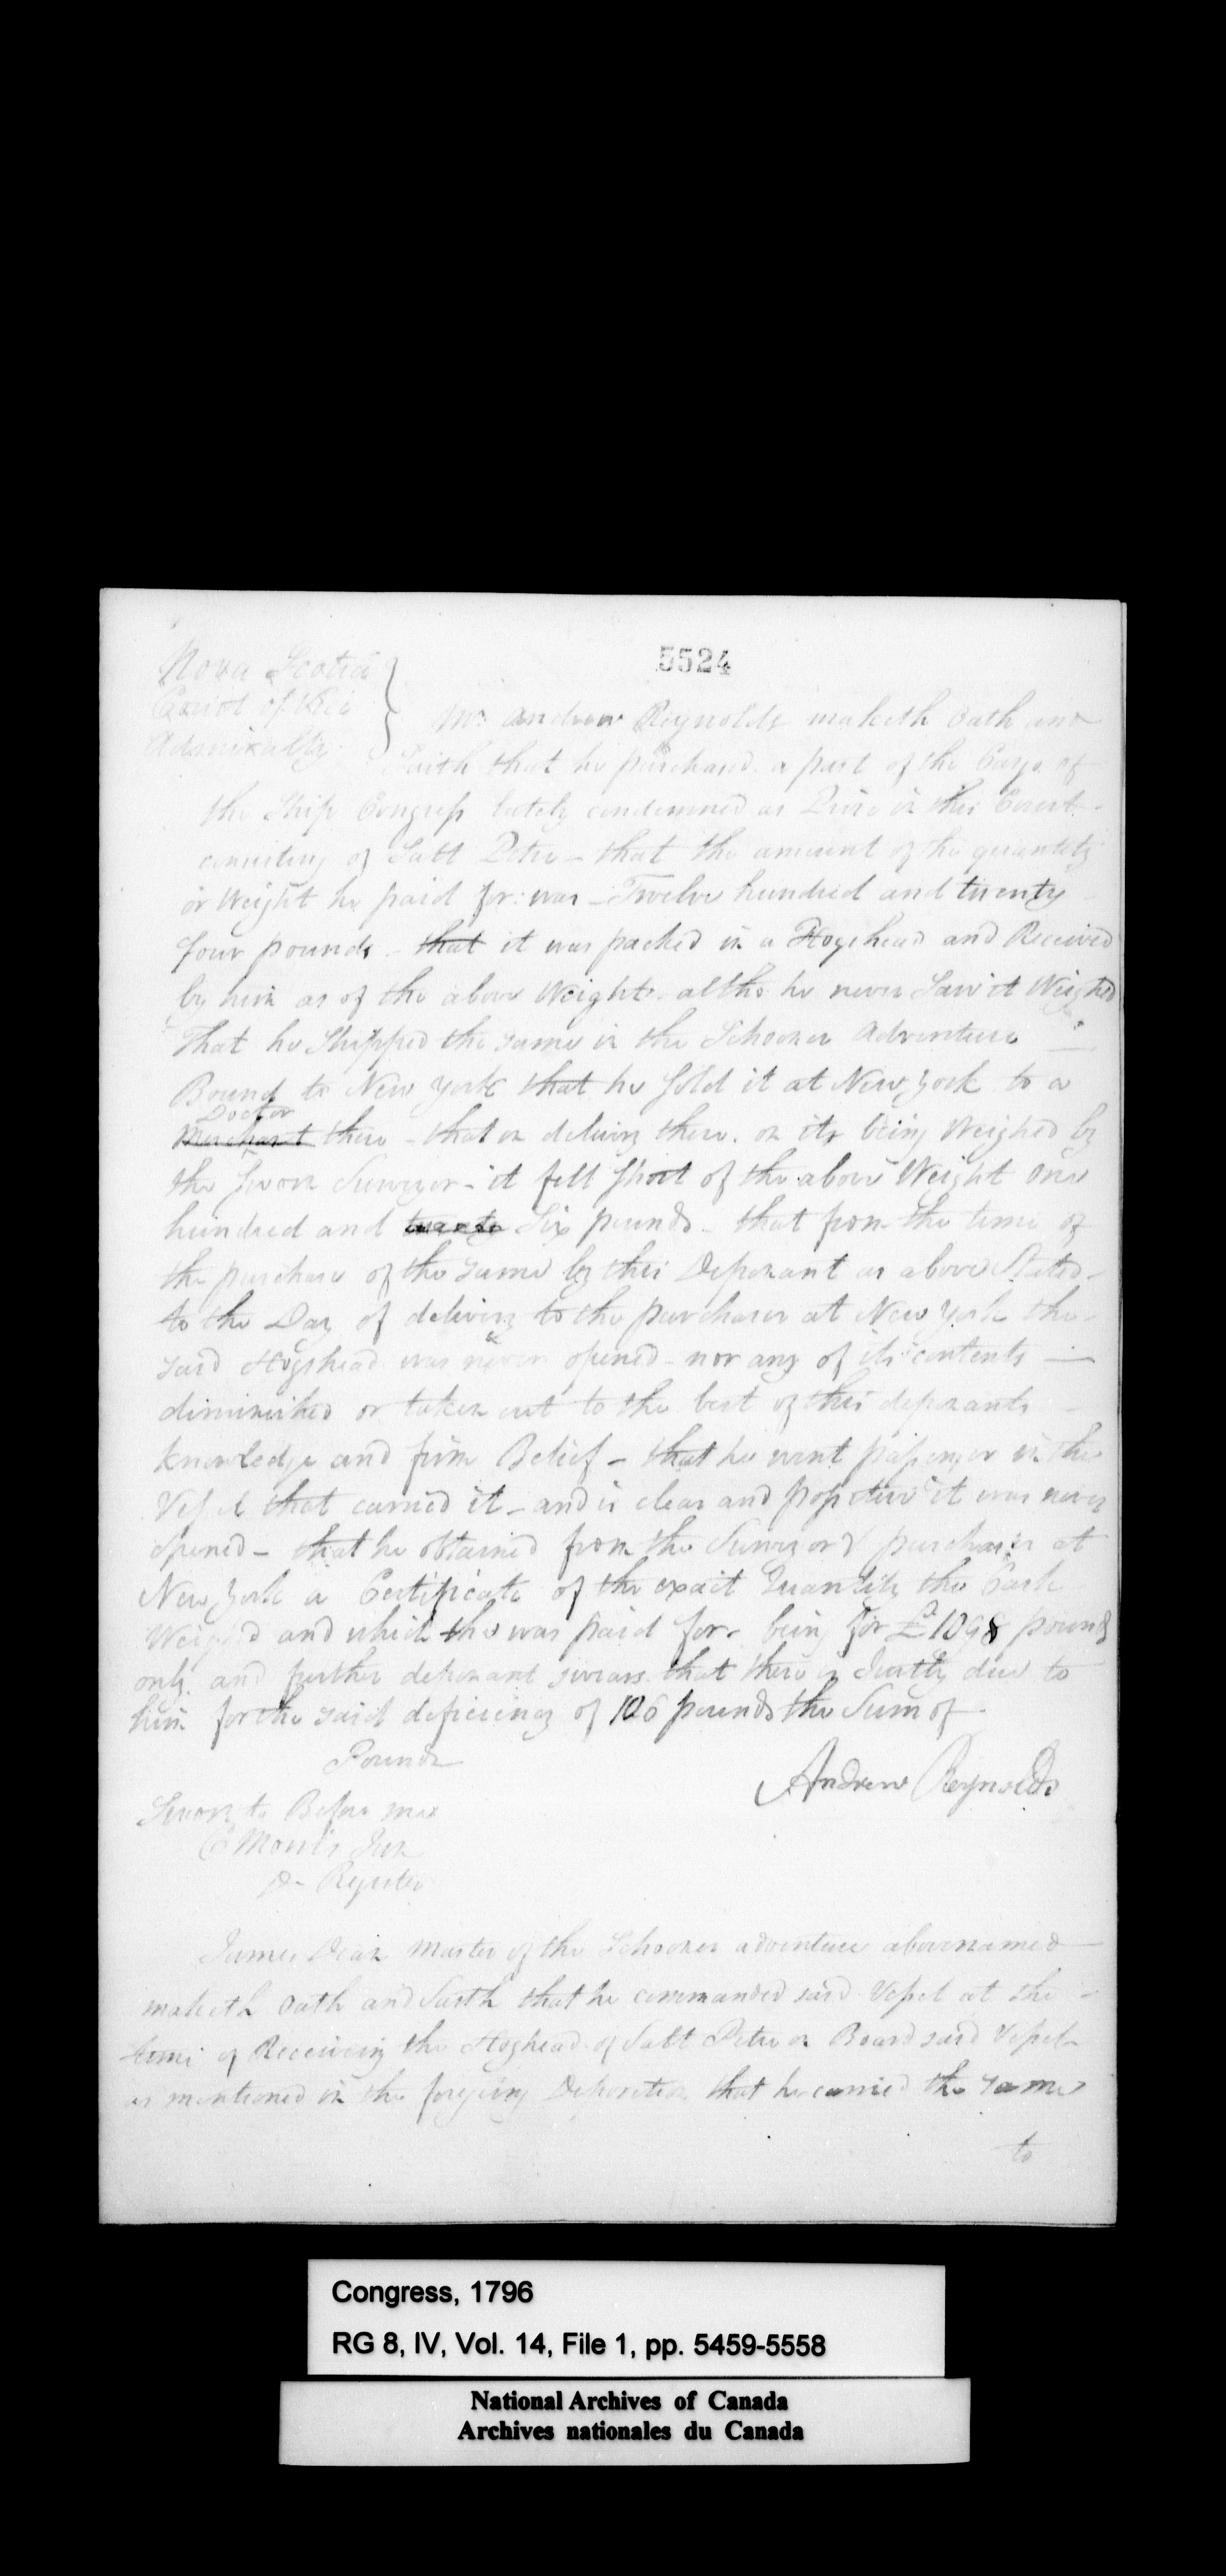 5524
Nova Scotia
Court of Vice
Admiralty
Mr. Andrew Reynolds maketh Oath and
Saith that he purchased a part of the Cargo of
the Ship Congress lately condemned as Prize in this Court
consisting of Salt Petre - that the amount of the quantity
or Weight he paid for was - Twelve hundred and twenty
four pounds - that it was packed in a Hogshead and Received
by him as of the above Weight altho he never Saw it Weighed
That he Shipped the same in the Schooner Adventure
Bound to New York that he Sold it at New York to a
Doctor
Merchant there - that on delivery there on its being Weighed by
the Sworn Surveyor - it fell Short of the above Weight One
hundred and twenty Six pounds - that from the time of
the purchase of the same by this Deponant as above Stated -
to the Day of delivery to the purchaser at New York the
said Hogshead was never opened - nor any of its contents -
diminished or taken out to the best of this deponants
knowledge and firm Belief - that he went passenger in the
Vessel that carried it - and is clear and possitive it was never
opened - that he obtained from the Surveyor & purchaser at
New York a Certificate of the exact Quantity the Cask
Weighed and which he was paid for - being for 1098 pounds
only and further deponant swears that there is Justly due to
him for the said deficiency of 106 pounds the Sum of
Pounds
Andrew Reynolds
Sworn to Before me
C Morris Jun
D. Register
James Dean Master of the Schooner adventure abovenamed
maketh Oath and Saith that he commanded said Vessel at the
time of Receiving the Hoghead of Salt Petre on Board said Vessel
as mentioned in the foregoing Deposition that he carried the same
to
Congress, 1796
RG 8, IV, Vol. 14, File 1, pp. 5459-5558
National Archives of Canada
Archives nationales du Canada